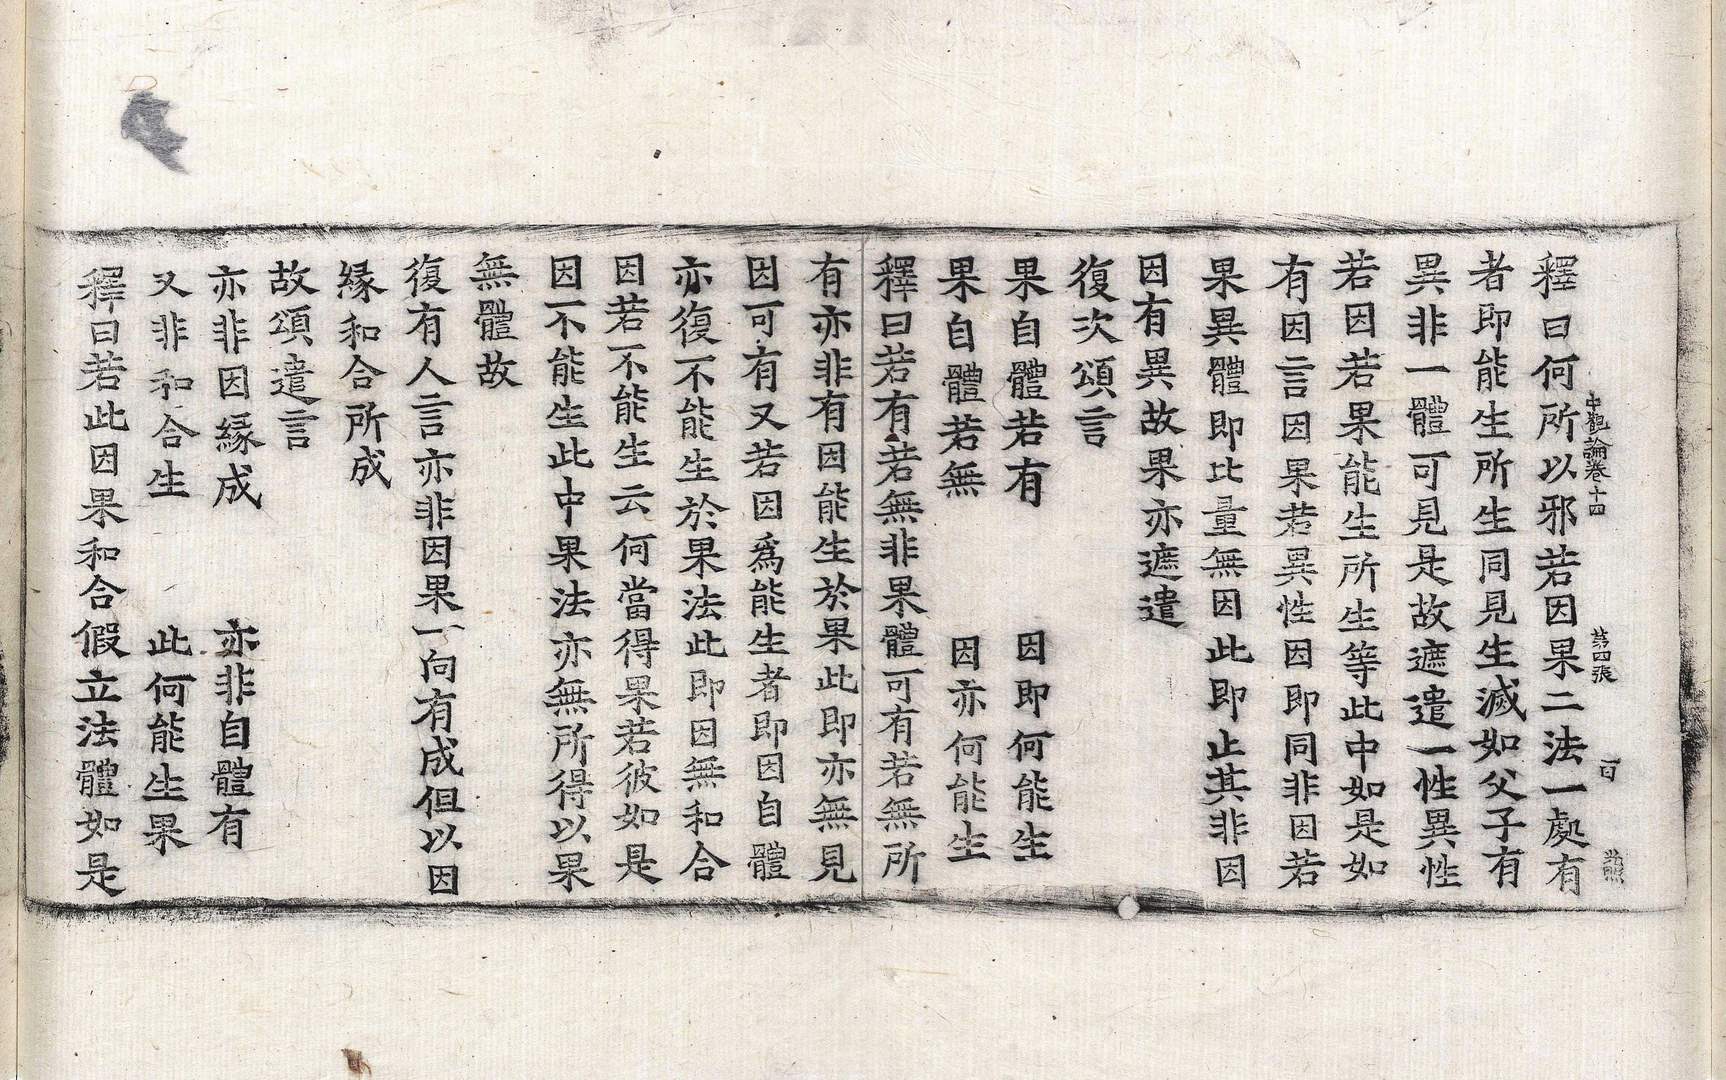 中觀論卷十四 第四張 百
釋曰何所以邪若因果二法一處有
者即能生所生同見生滅如父子有
異非一體可見是故遮遣一性異性
若因若果能生所生等此中如是如
有因言因果若異性因即同非因若
果異體即比量無因此即止其非因
因有異故果亦遮遣
復次頌言
果自體若有 因即何能生
果自體若無 因亦何能生
釋曰若有若無非果體可有若無所
有亦非有因能生於果此即亦無見
因可有又若因爲能生者即因自體
亦復不能生於果法此即因無和合
因若不能生云何當得果若彼如是
因不能生此中果法亦無所得以果
無體故
復有人言亦非因果一向有成但以因
緣和合所成
故頌遣言
亦非因緣成 亦非自體有
又非和合生 此何能生果
釋曰若此因果和合假立法體如是